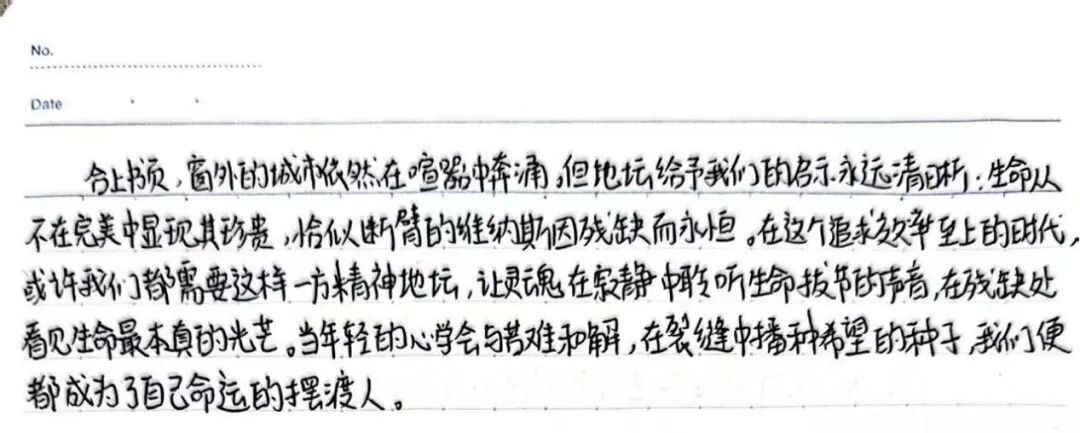 No.
Date
合上书页，窗外的城市依然在喧嚣中奔涌，但地坛给予我们的启示永远清晰：生命从
不在完美中显现其珍贵，恰似断臂的维纳斯因残缺而永恒。在这个追求效率至上的时代，
或许我们都需要这样一方精神地坛，让灵魂在寂静中聆听生命拔节的声音，在残缺处
看见生命最本真的光芒。当年轻的心学会与苦难和解，在裂缝中播种希望的种子，我们便
都成为了自己命运的摆渡人。